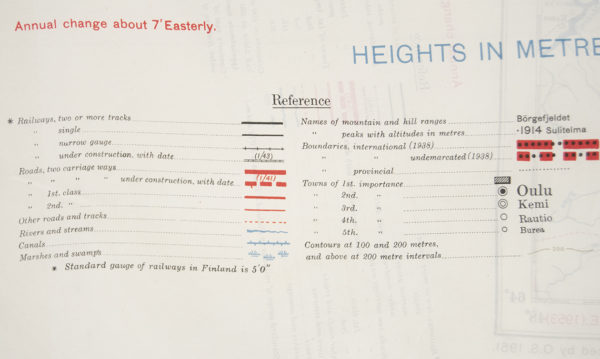 Annual change about 7' Easterly.
HEIGHTS IN METRE
Reference
* Railways, two or more tracks
" single
" narrow gauge
" under construction, with date (1/43)
Roads, two carriage ways
" " " under construction, with date (1/41)
" 1st. class
" 2nd. "
Other roads and tracks
Rivers and streams
Canals
Marshes and swamps
* Standard gauge of railways in Finland is 5'0"
Names of mountain and hill ranges Börgefjeldet
" peaks with altitudes in metres ·1914 Sulitelma
Boundaries, international (1938)
" " undemarcated (1938)
" provincial
Towns of 1st. importance
" 2nd. " Oulu
" 3rd. " Kemi
" 4th. " Rautio
" 5th. " Burea
Contours at 100 and 200 metres,
and above at 200 metre intervals 200
64°